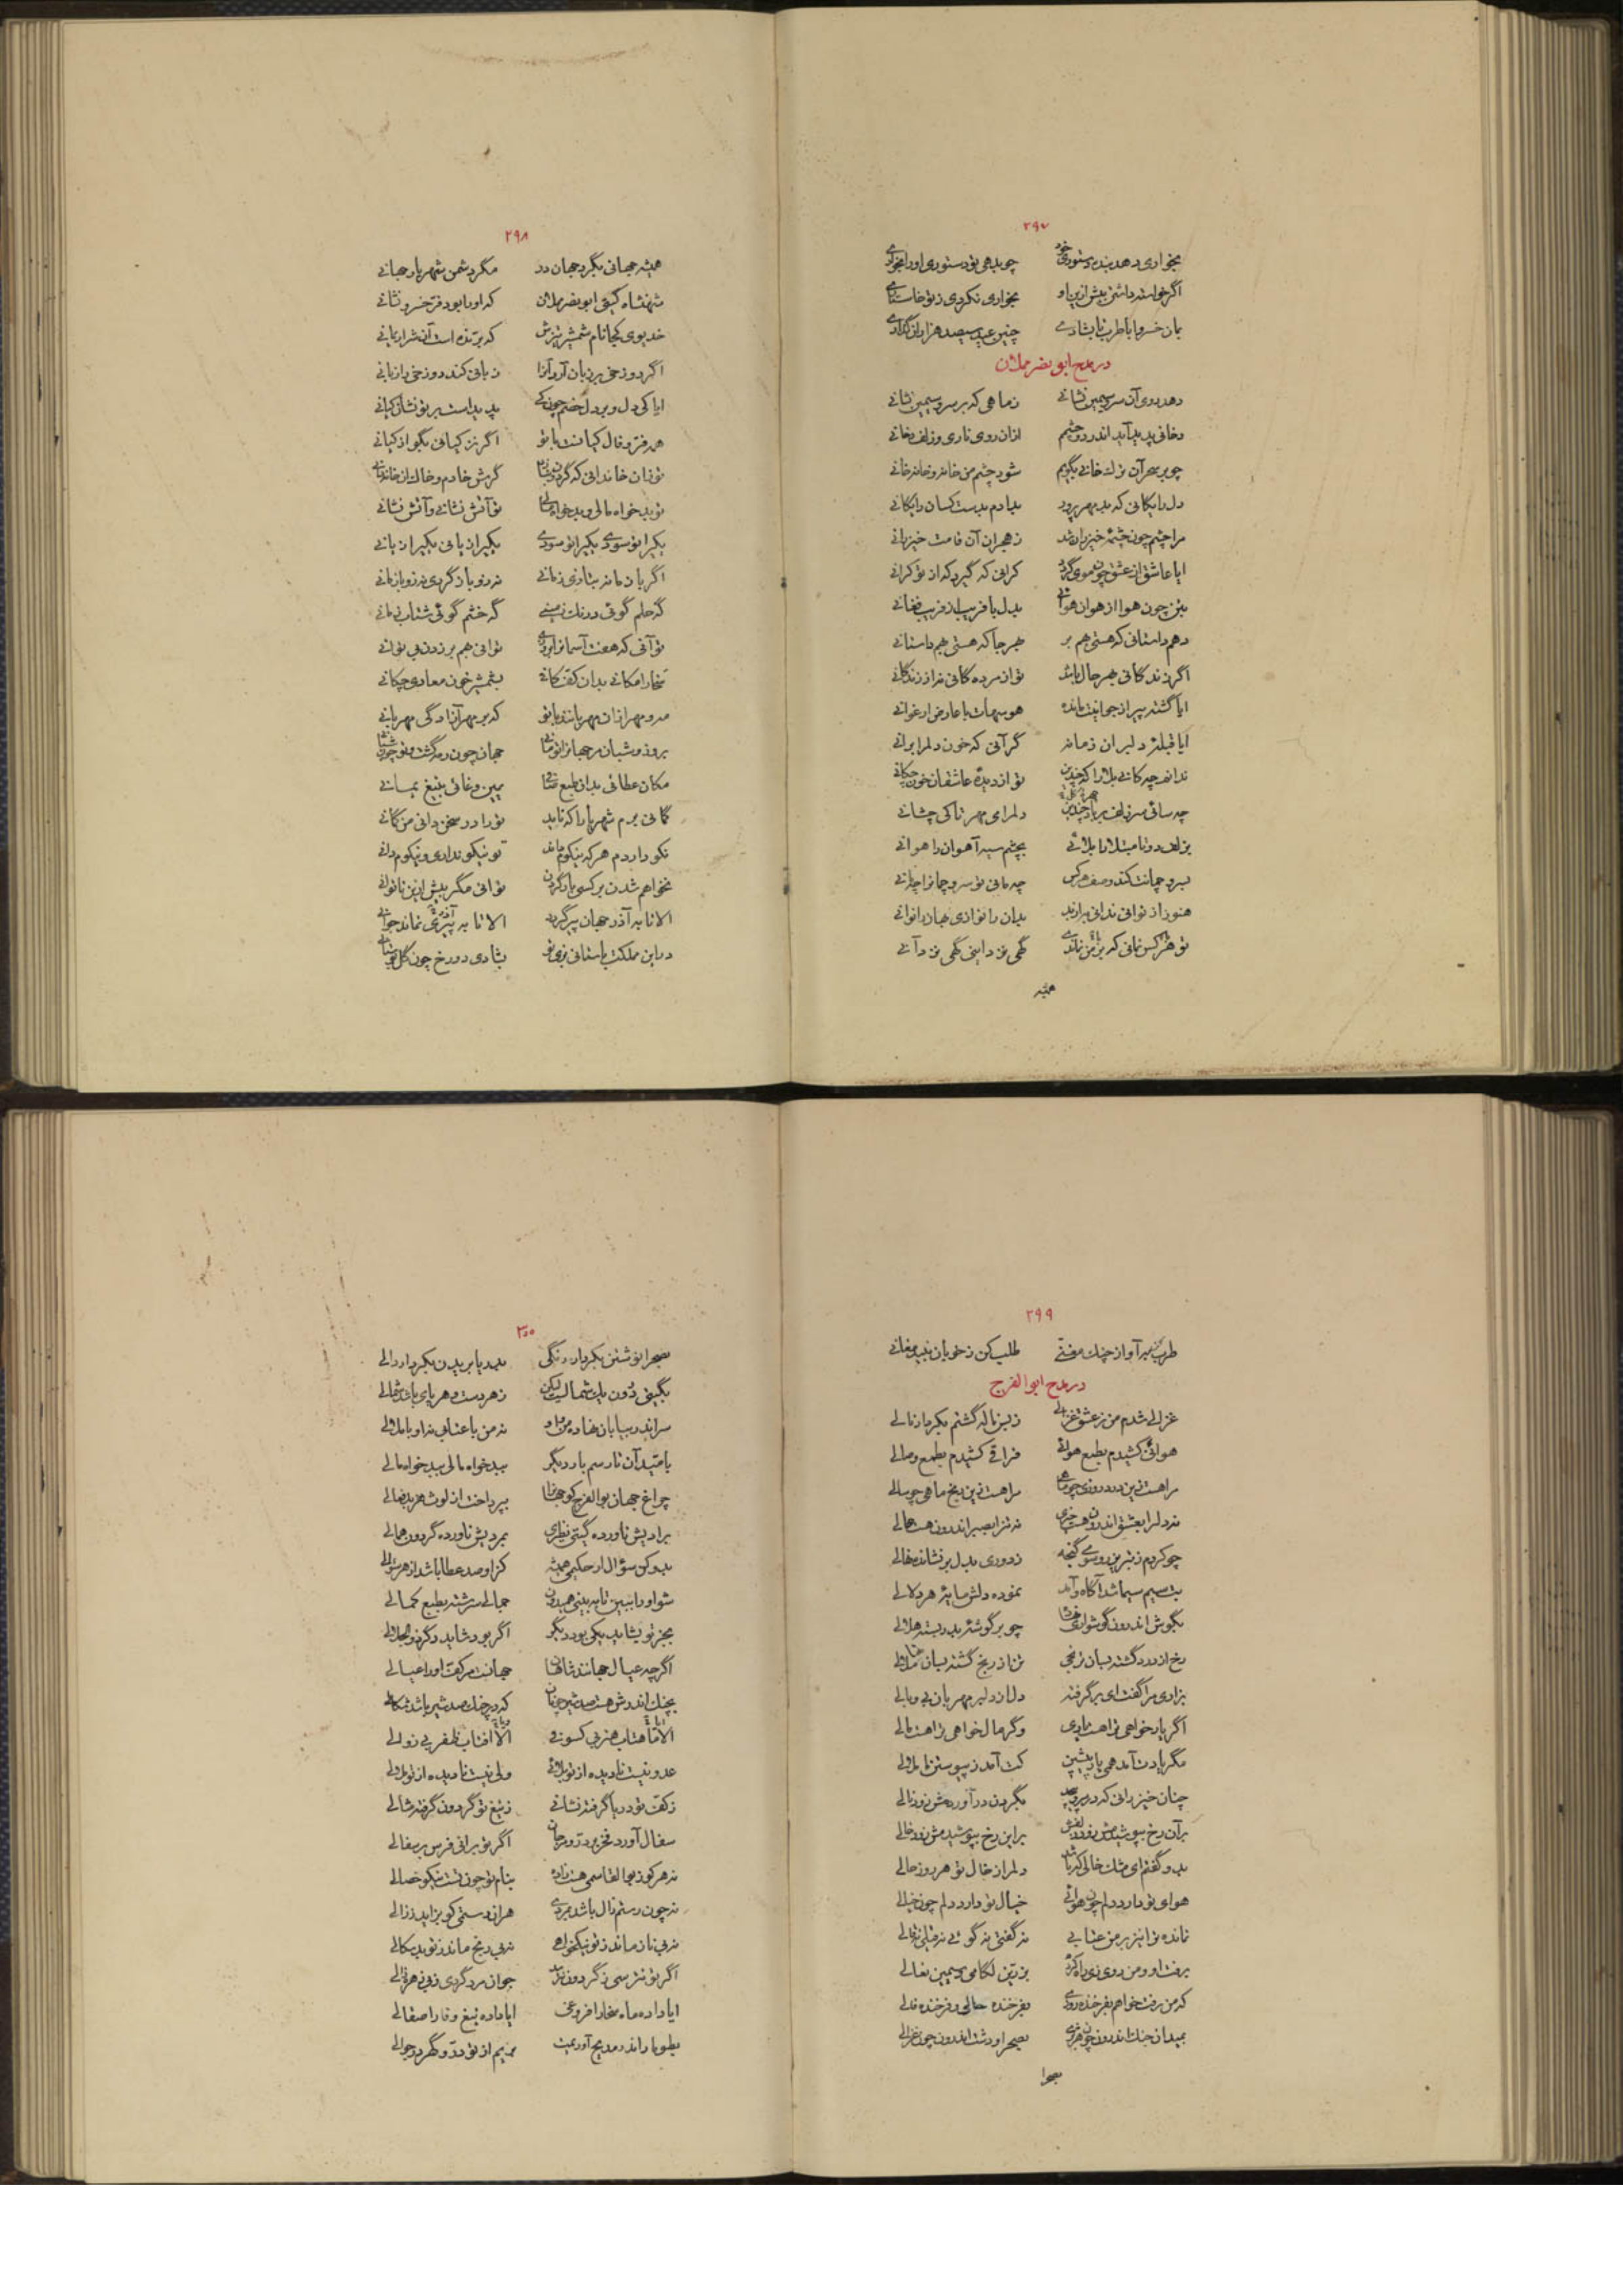 ۲۹۷
بخواری دهد بنده دستوری خود چو بدهی تو دستوری او را بخواری
اگر خواسته داشتی پیش ازین او بخواری نکردی ز تو خواستاری
بمان خسروا با طرب تا بشادی چنین عید سیصد هزاران گذاری
در مدح ابو نصر مملان
دهد روی آن سرو سیمین نشانی ز ماهی که بر سرو سیمین نشانی
دخانی پدید آید اندر دو چشم ازان روی ناری و زلف دخانی
چو بر هجر آن ترک خانی بگریم شود چشم من خانه و خانه خانی
دل رایگانی که بد مهر پرور بدادم بدست کسان رایگانی
مرا چشم چون چشمه خیزران شد ز هجران آن قامت خیزرانی
ایا عاشق از عشق چون موی گرد کرانی که گیرد که از تو کرانی
بتن چون هوا از هوان هوائی بدل با فریب از فریب فغانی
دهم داستانی که هستی هم بر بهر جا که هستی بهم داستانی
اگر زندگانی بهر حال باید تو از مرده گانی نه از زندگانی
ایا گشته پیر از جوانیت مانده هوسهات با عارض ارغوانی
ایا قبله دلبران زمانه گر آنی که خون دلم را برانی
ندانم چه کانی بلا را که چندین تو از دیده عاشقان خون چکانی
چه سائی سر زلف بر باد چندین دلم رای مهر تا کی چشانی
بزلف دو تا مبتلا را بلائی بچشم سیه آهوان را هوانی
بسرو چمانت کند وصف هر کس چه مانی تو سرو چمانرا چمانی
هنوز از توانی ندانی برازند بدان را نوازی بهار را نوانی
تو هر کس نمانی که بر من نماندی گهی نزد اینی گهی نزد آنی
همیشه
۲۹۸
همیشه جهانی بگرد جهان در مگر دشمن شهریار جهانی
شهنشاه گیتی ابو نصر مملان که او را بود فر خسرو نشانی
خدیوی کجا نام شمشیر تیزش که برنده است آن شرار یمانی
اگر دوزخی بر زبان آرد آنرا زبانی کند دوزخی را زبانی
ایا کی دل و برد دل خصم چون کی پدید است بر تو نشان کیانی
همه فر و فال کیانست با تو اگر نز کیانی بگو از کیانی
تو زان خاندانی که گردون گردان گرش خادم و خاک از خاندانی
تو بد خواه مالی و بد خواه سائی تو آتش نشانی و آتش نشانی
بگیر از تو سودی بگیر از تو سودی بگیر از یانی بگیر از یانی
اگر یا زمانه بتازی زمانی نه زو باز گردی نه زو باز مانی
گه حلم گوئی درنگ زمینی گه خشم گوئی شتاب زمانی
تو آنی که هفت آسمانرا بر دی توانی بهم بر زدن بی توانی
سخا را مکانی بدان کف کانی بشمشیر خون معادی چکانی
مه و مهر ازان مهربانند با تو که بر مهر آزادگی مهربانی
بروز و شبان مر جهانرا تو مانی جهان چون رمه گشت و تو چون شبانی
مکان عطائی بدان طبع صافی یمین وغائی بتیغ یمانی
گمانی برم شهریارا که ناید تو را در سخن دانی من گمانی
نکو داردم هر که نیکوم داند تو نیکو نداری و نیکوم دانی
نخواهم شدن بر کسی بار گردن توانی مگر بیش ازین ناتوانی
الا تا به آذر جهان پیر گردد الا تا به پیری نماند جوانی
درین مملکت باستانی بزی تو بشادی دو رخ چون گل بوستانی
۲۹۹
طرب گیر بر آواز چنگ مغنی طلب کن ز خوبان نبید مغانی
در مدح ابو الفرج
غزالی شدم من ز عشق غزالی ز بس ناله گشتم بکردار نالی
هوائی کشیدم بطمع هوائی فراقی کشیدم بطمع وصالی
مرا هست زین درد روزی چو ماهی مرا هست زین رنج ماهی چو سالی
نه دلرا بعشق اندرون هست جرمی نه تنرا بصبر اندرون هست حالی
چو کردم ز تبریز رو سوی گنجه ز دوری بدل بر نشاندم نهالی
بت سیم سیما شد آگاه و آمد نموده دلش مایه هر دلالی
بگوش اندرون گوشواری چو بر گوشه بدر بسته هلالی
رخ از درد گشته بسان ترنجی تن از رنج گشته بسان خلالی
بزاری مرا گفت ای بر گرفته دل از دلبر مهربان بی وبالی
اگر یار خواهی ترا هست یاری وگر مال خواهی ترا هست مالی
مگر یادت آمد همی یار پیشین کت آمد ز پیوستن ما ملالی
چنان خیزرانی که در پیچد بگردن در آورد مش زود نالی
بر آن رخ بپوشید مش زود زلفی بر این رخ بپوشید مش زود خالی
بدو گفتم ای مشک خالی که باشد دلم از خال تو هر روز خالی
هوای تو دارد دلم چون هوائی خیال تو دارد دلم چون خیالی
نمانده ترا نیز بر من عتابی نه گفتی نه گوئی نه قیلی نه قالی
برفت او و من روی زی راه کرده بزرین لگامی و سیمین نعالی
که من رفت خواهم بفرخنده روزی بفرخنده حالی و فرخنده فالی
بمیدان جنگ اندرون چون هژبری بصحرا و دشت اندرون چون غزالی
بصحرا
۳۰۰
بصحرا نوشتن بکردار رنگی بدریا بریدن بکردار دالی
بگیتی درون یک شمالیست لیکن ز هر دست و هر پای باشد شمالی
سر اندر بیابان نهاده من و او نه من با عنائی نه او با ملالی
بامید آن تا رسم بار دیگر ببد خواه مالی ببد خواه مالی
چراغ جهان بو الفرج کو جهانرا بپرداخت از لوث هر بد فعالی
برادیش ناورده گیتی نظیری بمردیش ناورده گردون همالی
بدو کن سؤال ار حکیمی همیشه کزو صد عطا باشد از هر سؤالی
شو او را ببین تا به بینی همیدون جمالی سرشته بطبع کمالی
بجز تو نشاید یکی بود دیگر اگر بود شاید دگر ذو الجلالی
اگر چه عیال جهانند شاهان جهانست مر کف او را عیالی
بچنگ اندرش هست صد شیر چونان که در چنگ صد شیر باشد شکالی
الا ماهتاب هنر بی کسوفی الا آفتاب ظفر بی زوالی
عدو نیست نادیده از تو بلائی ولی نیست نادیده از تو نوالی
ز کف تو دریا گرفته نشانی ز تیغ تو گردون گرفته مثالی
سفال آورد فخر بر در و مرجان اگر تو برانی فرس بر سفالی
نه هر کو ز بو القاسمی هست زاده بنام تو چون تست نیکو خصالی
نه چون رستم زال باشد بمردی هران رستمی کو بزاید ز زالی
نه بی ناز ماند ز تو نیکخواهی نه بی رنج ماند ز تو بد سکالی
اگر تو نترسی ز گردون جوان مرد گردی ز وی هر زالی
ایا داده ماه سخا را فروغی ایا داده تیغ وفا را صقالی
بطومار اندر مدیح آورمت بریم از تو در و گهر در جوالی